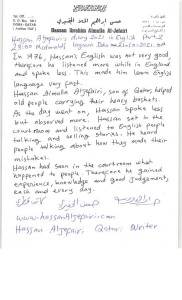 حسن إبراهيم الملا الجفيري
Hassan Ibrahim Almalla Al-Jefairi
Hassan Aljefairi Diary 2021 in English Part-2
In 1976, Hassan's English was not very good,
therefore he listened more while in England
and spoke less. This made him learn English
language very fast.
Hassan Almalla Aljefairi, son of Qatar, helped
old people carrying their heavy baskets.
As the day went on, Hassan spoke less
but observed more. Hassan set in the
courtroom and listened to English people
talking and selling stories. He heard
people talking about how they made their
mistakes.
Hassan had seen in the courtroom what
happened to people. Therefore he gained
experience, knowledge and good judgement,
each and every day.
www.hassanAljefairi.com
Hassan Aljefairi Qatari Writer